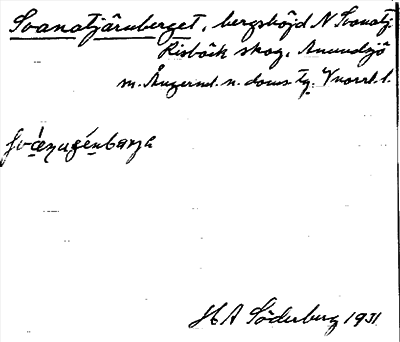 Svanatjärnberget, bergshöjd N Svanatj.
Risbäck skog, Anundsjö
m. Ångerml. n. doms tg. Vnorrl. l.
H A Söderberg 1931